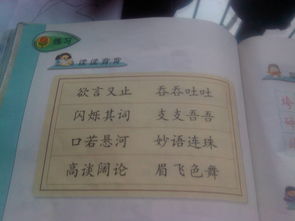 练习
读读背背
欲言又止 吞吞吐吐
闪烁其词 支支吾吾
口若悬河 妙语连珠
高谈阔论 眉飞色舞